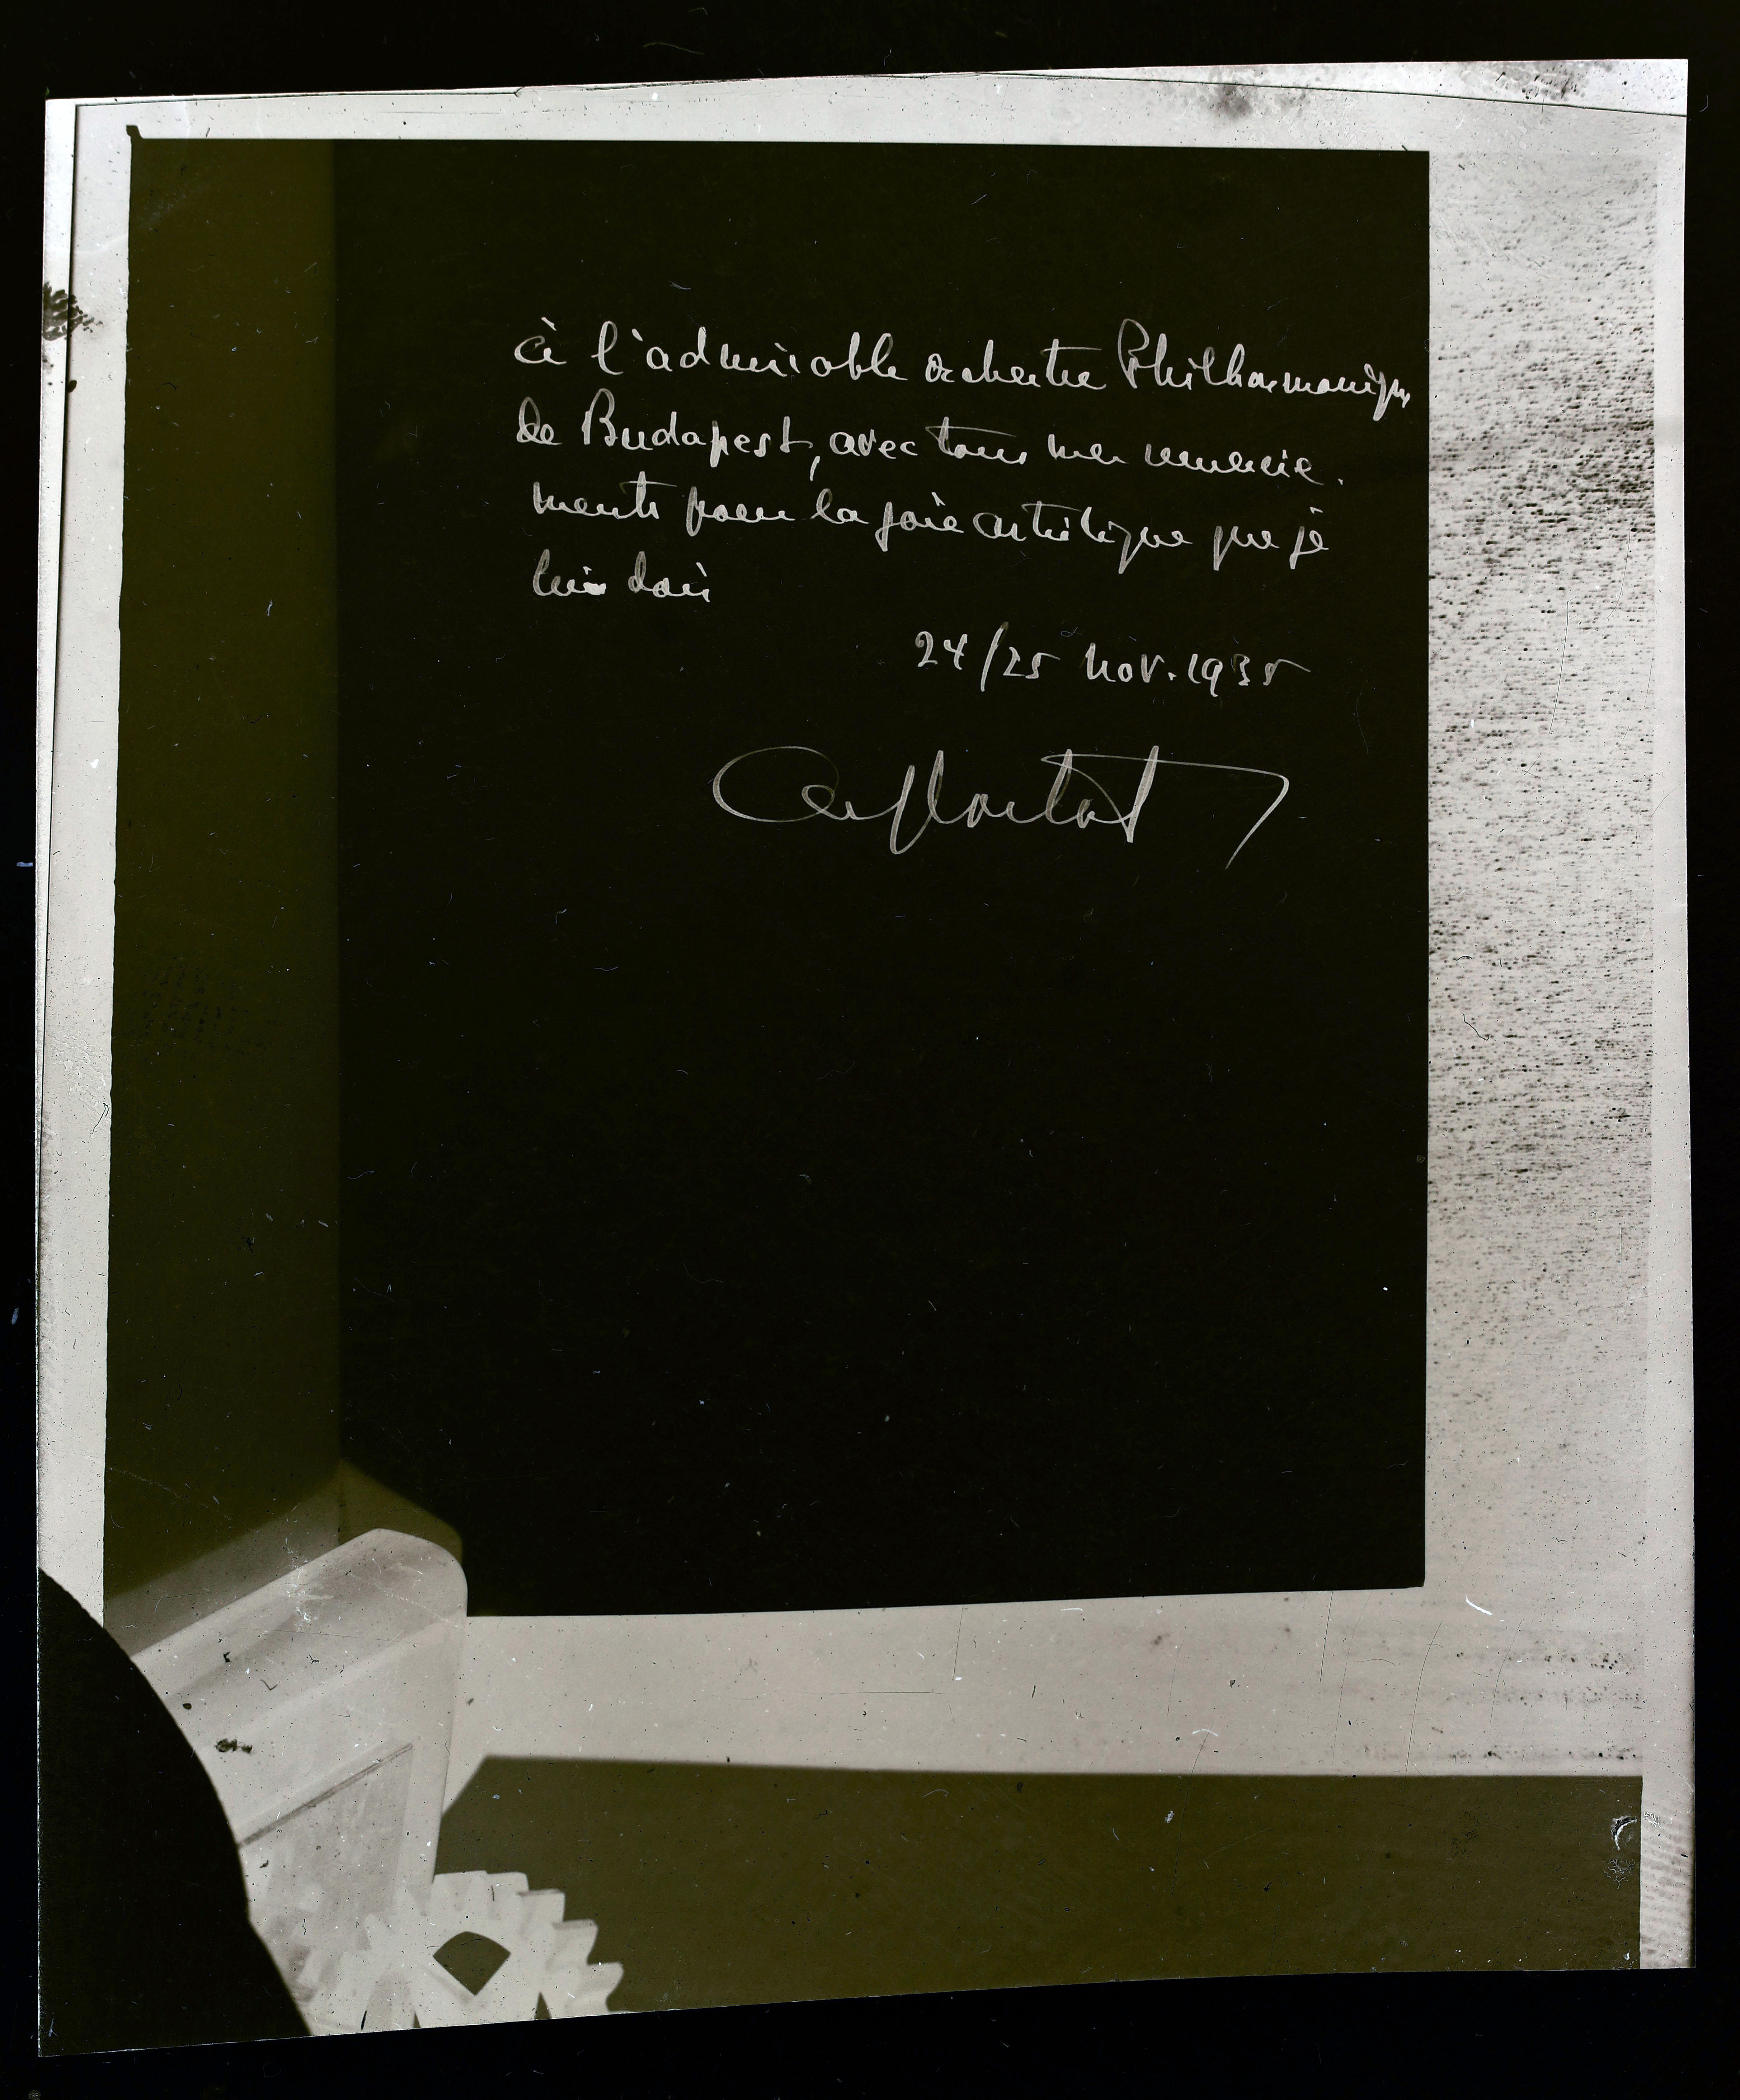 à l'admirable orchestre Philharmonique
de Budapest, avec tous mes remercie-
ments pour la joie artistique que je
lui dois
24/25 Nov. 1935
Alf Cortot